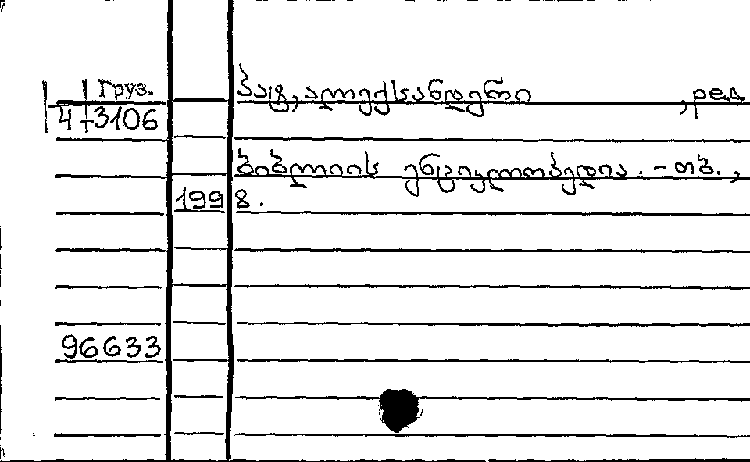 Груз. პატ,ალექსანდერი ,ред
4-3106
ბიბლიის ენციკლოპედია. - თბ.,
1998.
96633